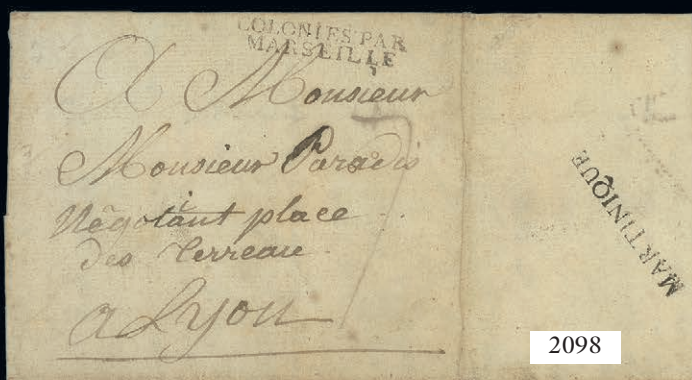 COLONIES PAR
MARSEILLE
A Monsieur
Monsieur Paradis
Négotiant place
des Terreau
a Lyon
MARTINIQUE
2098